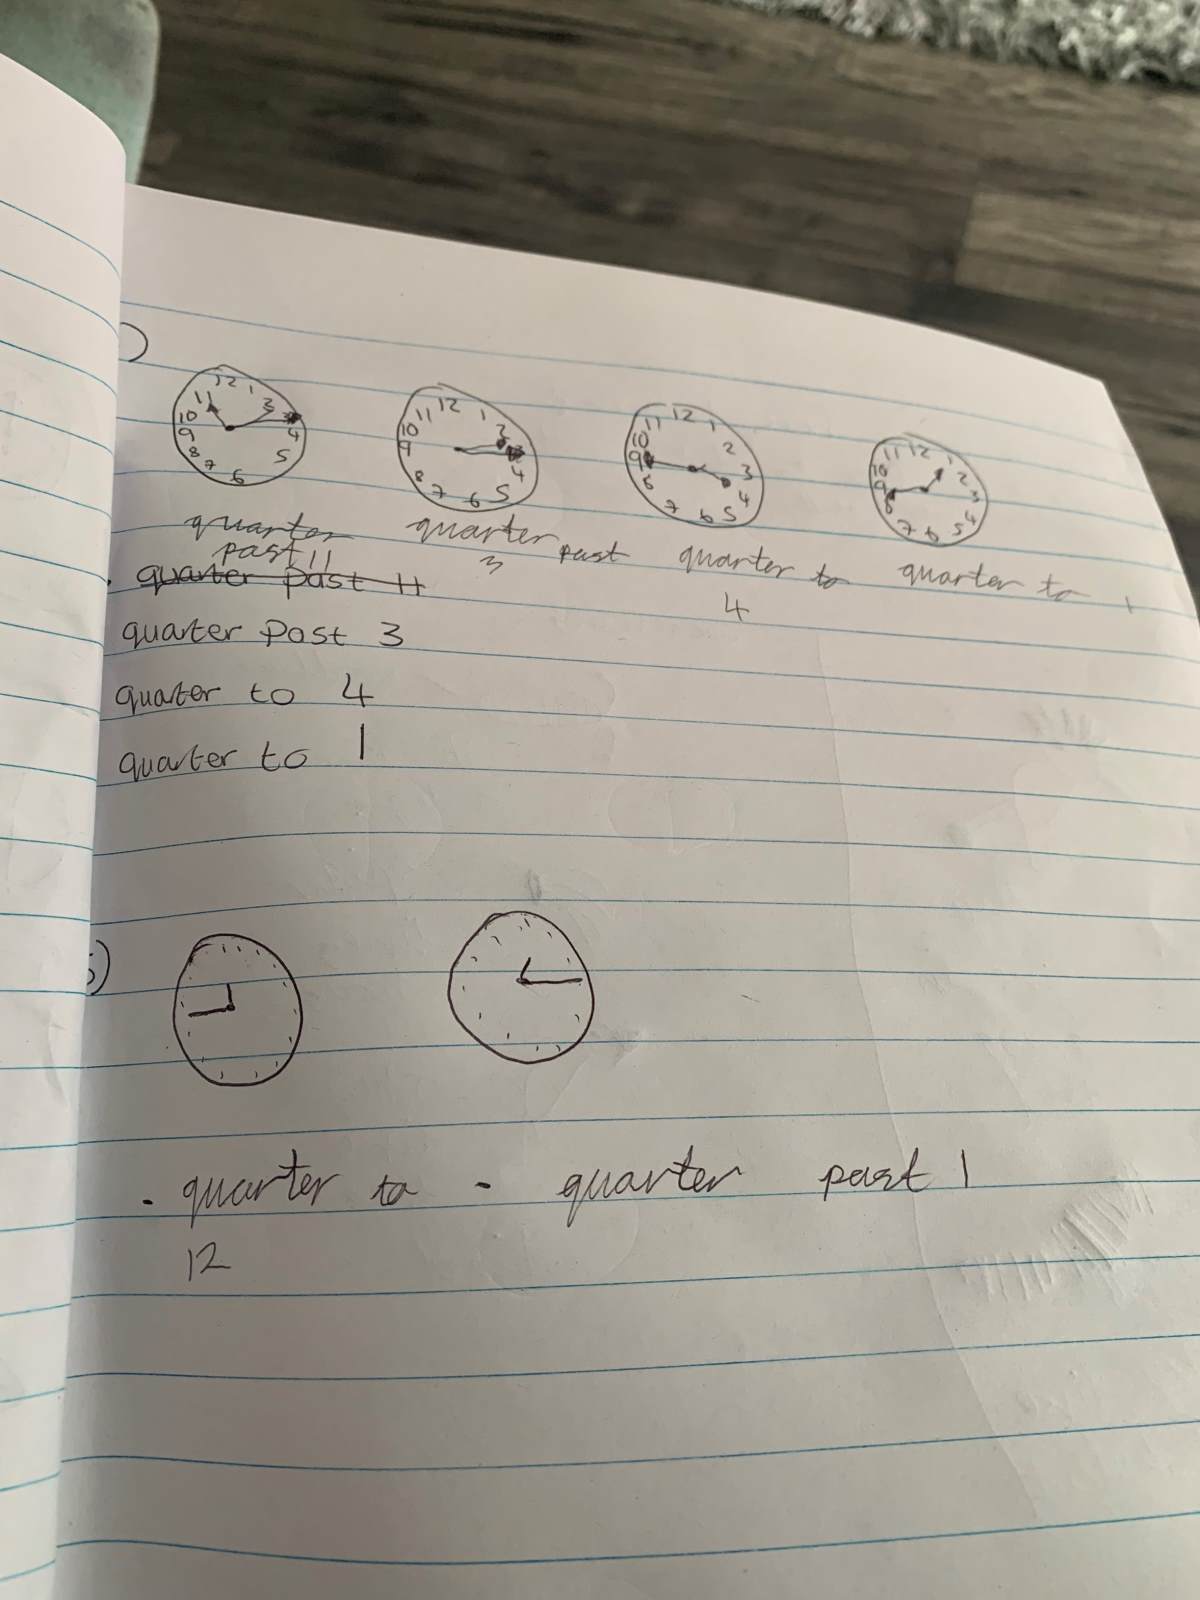 )
12 1 2 3 4 5 6 7 8 9 10 11
12 1 2 3 4 5 6 7 8 9 10 11
12 1 2 3 4 5 6 7 8 9 10 11
12 1 2 3 4 5 6 7 8 9 10 11
quarter past 11
quarter past 3
quarter to 4
quarter to 1
quarter past 11
quarter past 3
quarter to 4
quarter to 1
5)
. quarter to 12
. quarter past 1